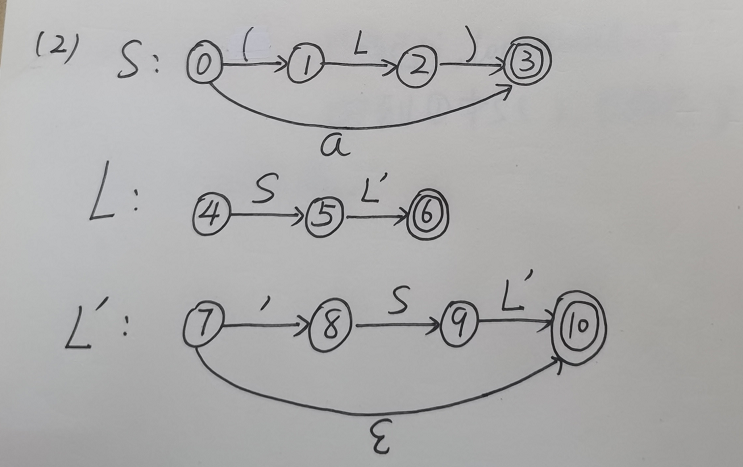 (2) S: 0 ( 1 L 2 ) 3
a
L: 4 S 5 L′ 6
L′: 7 , 8 S 9 L′ 10
ε